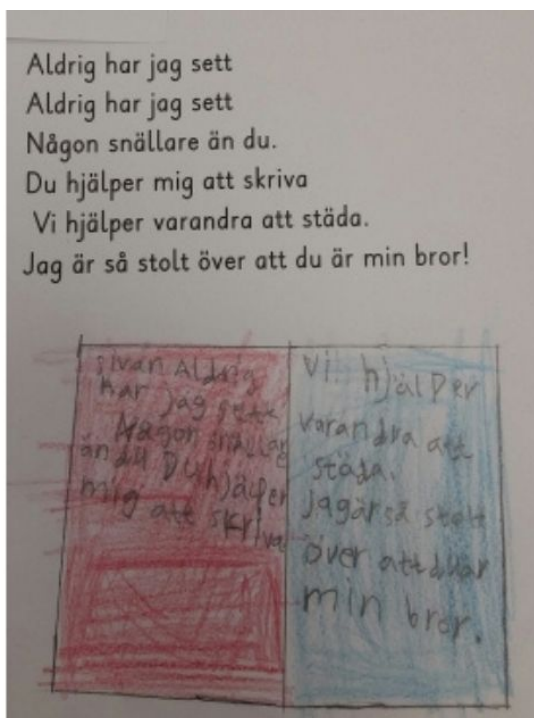 Aldrig har jag sett
Aldrig har jag sett
Någon snällare än du.
Du hjälper mig att skriva
Vi hjälper varandra att städa.
Jag är så stolt över att du är min bror!
sivan Aldrig
har jag sett
Någon snällar
än du Du hjälper
mig att skriva
Vi hjälper
varandra att
städa.
Jag är så stolt
över att du är
min bror.